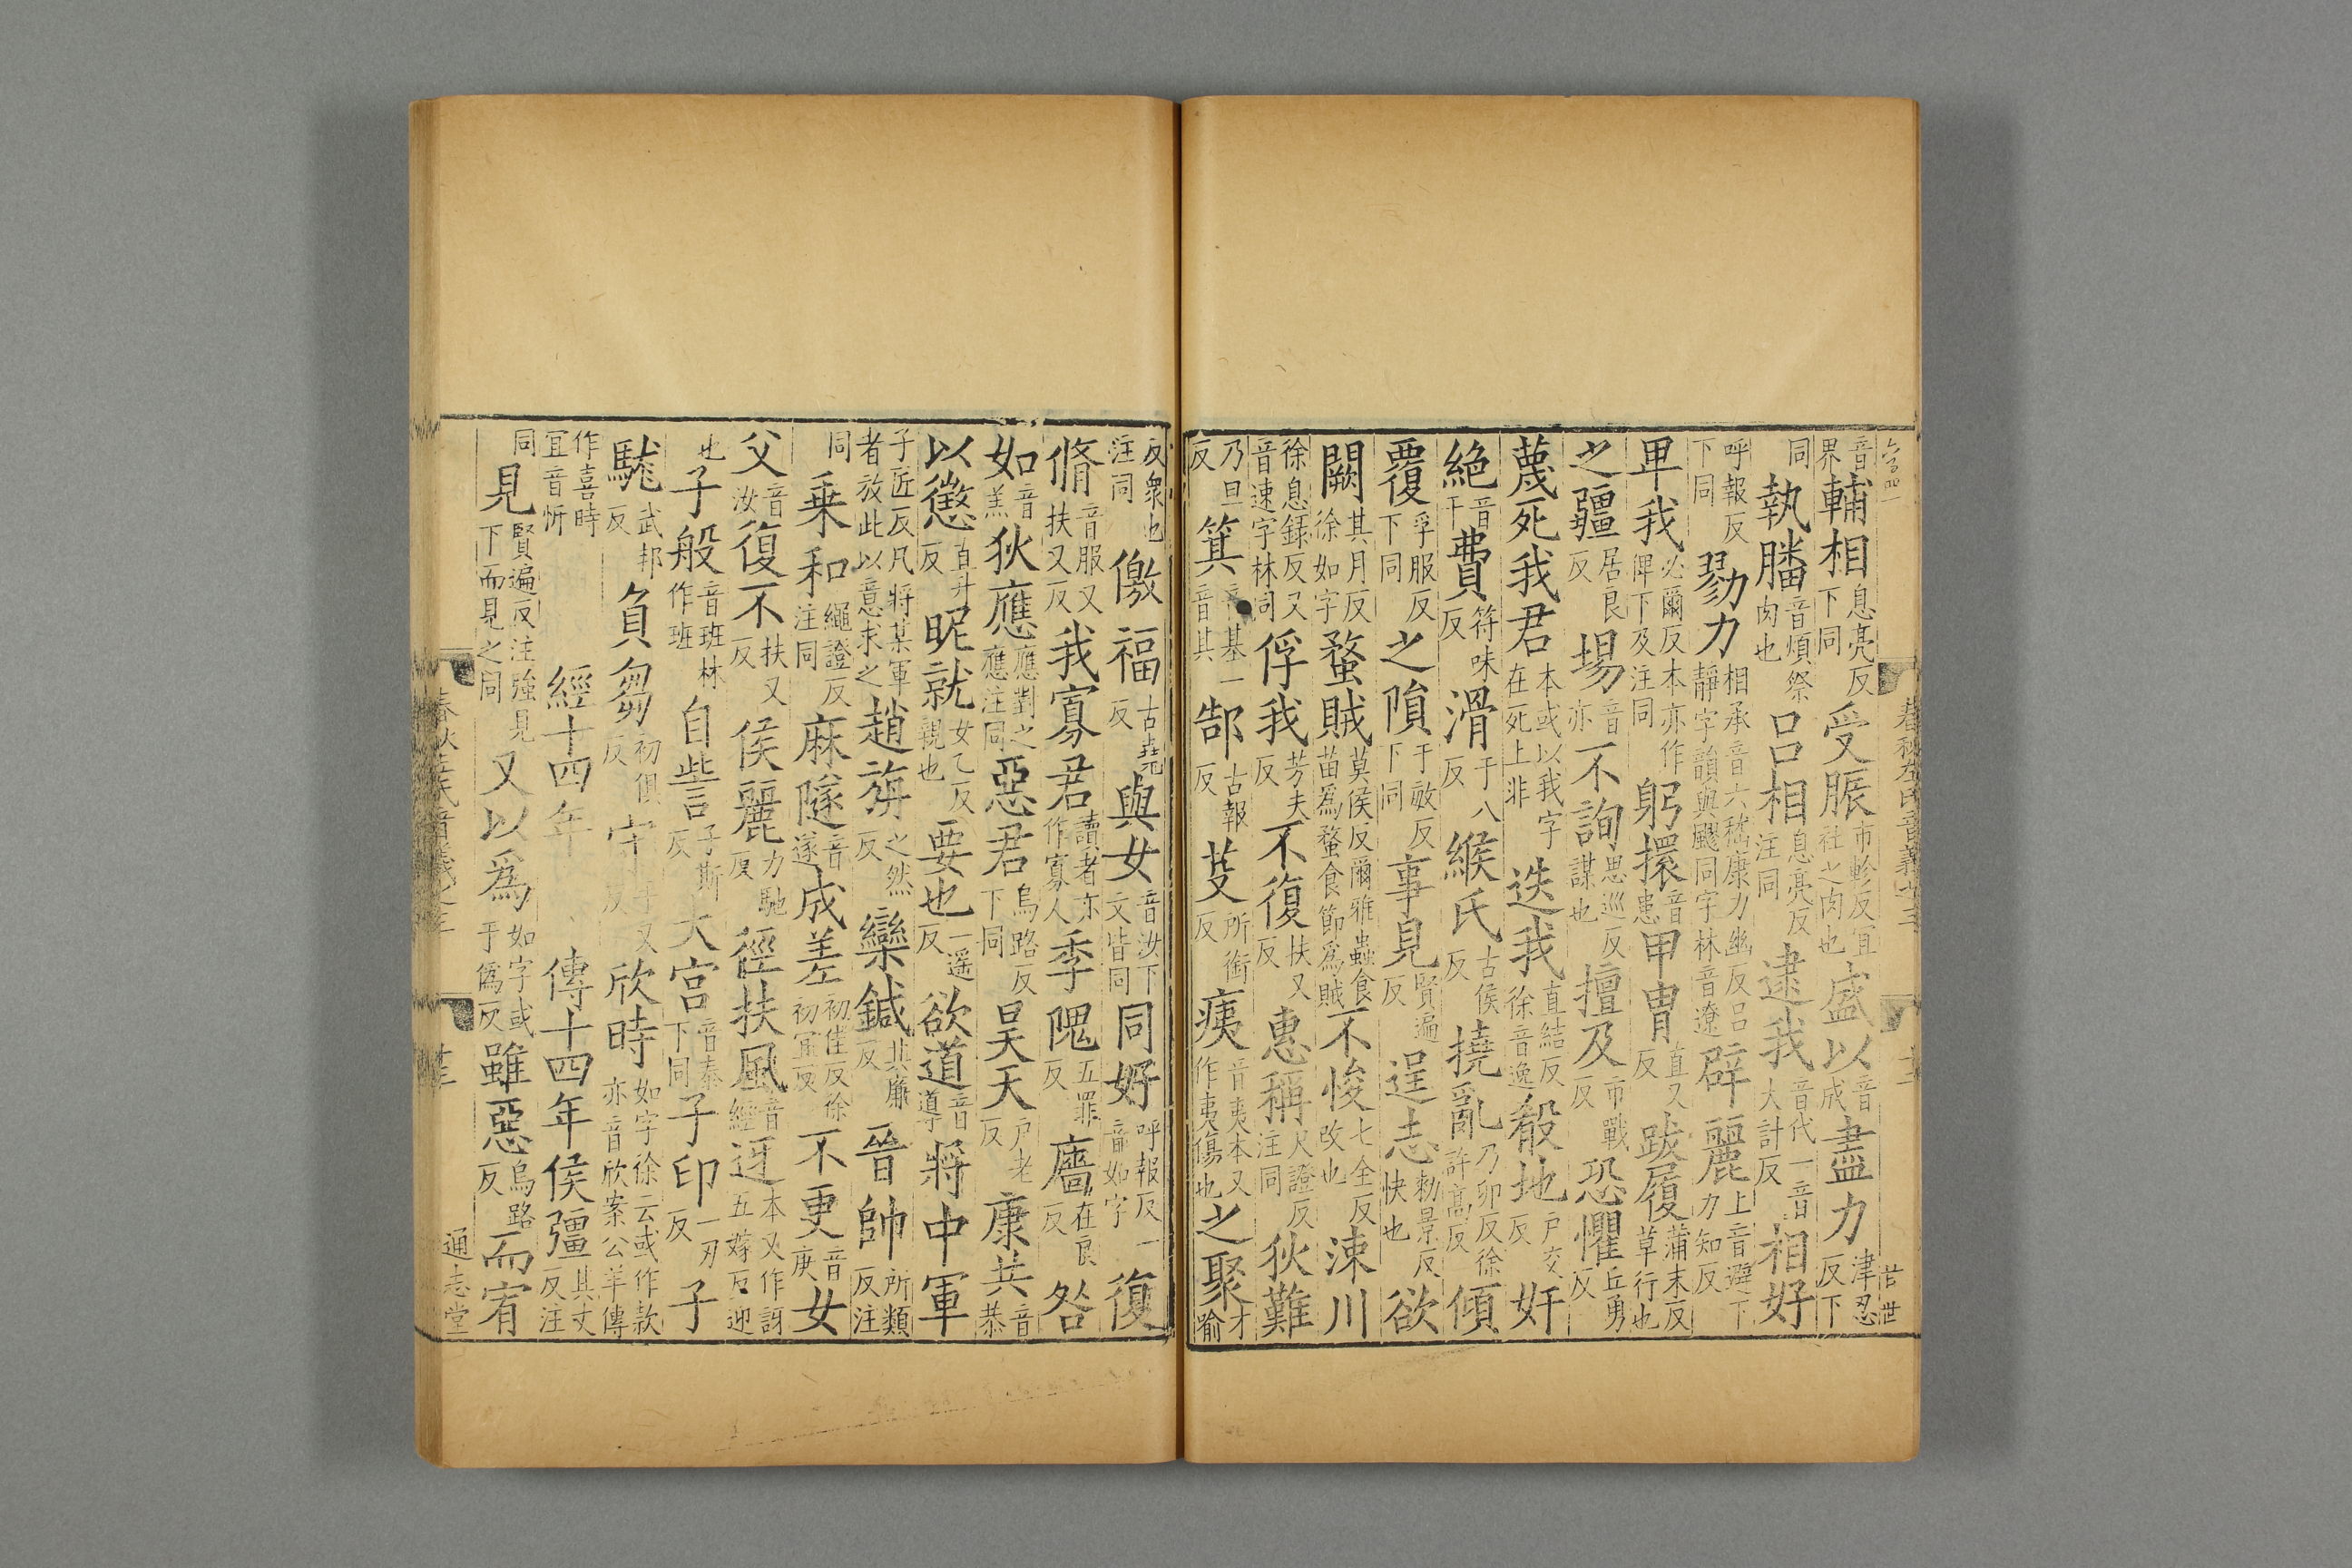 春秋左氏音義之三
音界輔相息亮反下同受脤市軫反宜社之肉也盛以音成盡力津忍反下
同執膰音煩祭肉也呂相息亮反注同逮我音代一音大計反相好
呼報反下同勠力相承音六嵇康力幽反呂靜字韻與飂同字林音遼辟麗上音避下力知反
甲我必爾反本亦作俾下及注同躬擐音患甲冑直又反跋履蒲末反草行也
之疆居良反場音亦不詢思巡反謀也擅及市戰反恐懼丘勇反
蔑死我君本或以我字在死上非迭我直結反徐音逸殽地戶交反奸
絕音干費符味反滑于八反緱氏古侯反撓亂乃卯反徐許高反傾
覆孚服反下同之隕于敏反下同事見賢遍反逞志勑景反快也欲
闕其月反徐如字蝥賊莫侯反爾雅蟲食苗爲蝥食節爲賊不悛七全反改也涑川
徐息錄反又音速字林同俘我芳夫反不復扶又反惠稱尺證反注同狄難
乃旦反箕音基一音其郜古報反芟所銜反痍音夷本又作夷傷也之聚才喻
反衆也注同儌福古堯反與女音汝下文皆同同好呼報反一音如字復
脩音服又扶又反我寡君讀者亦作寡人季隗五罪反廧在良反咎
如音羔狄應應對之應注同惡君烏路反下同昊天戶老反康共音恭
以懲直升反昵就女乙反親也要也一遥反欲道音導將中軍
子匠反凡將某軍者放此以意求之趙旃之然反欒鍼其廉反晉帥所類反注
同乗和繩證反注同麻隧音遂成差初佳反徐初宜反不更音庚女
父音汝復不扶又反侯麗力馳反徑扶風音經迓本又作訝五嫁反迎
也子般音班林作班自訾子斯反大宫音泰下同子印一刃反子
駹武邦反負芻初俱反守手又反欣時如字徐云或作款亦音欣案公羊傳
作喜時宜音忻經十四年傳十四年侯彊其丈反注
同見賢遍反注強見下而見之同又以爲如字或于僞反雖惡烏路反而宥
通志堂